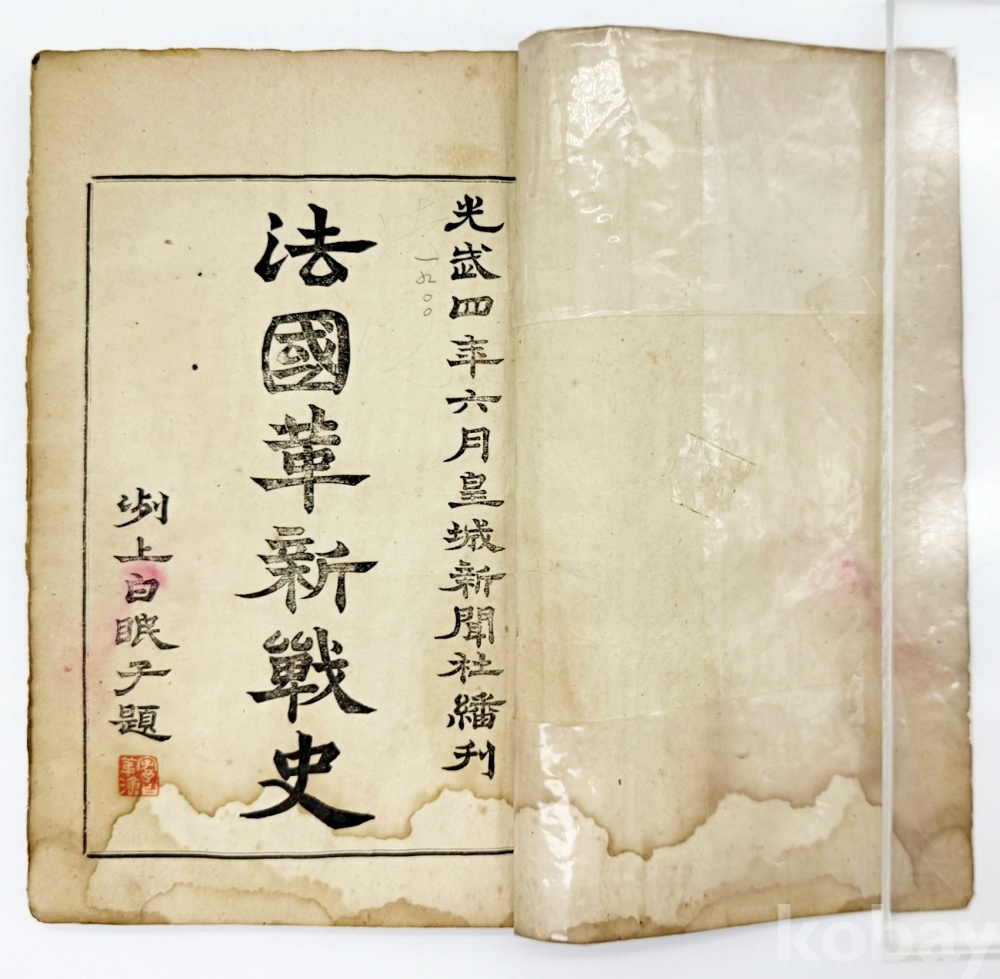 光武四年六月皇城新聞社繙刊
一九〇〇
法國革新戰史
洌上白眠子題
kobay